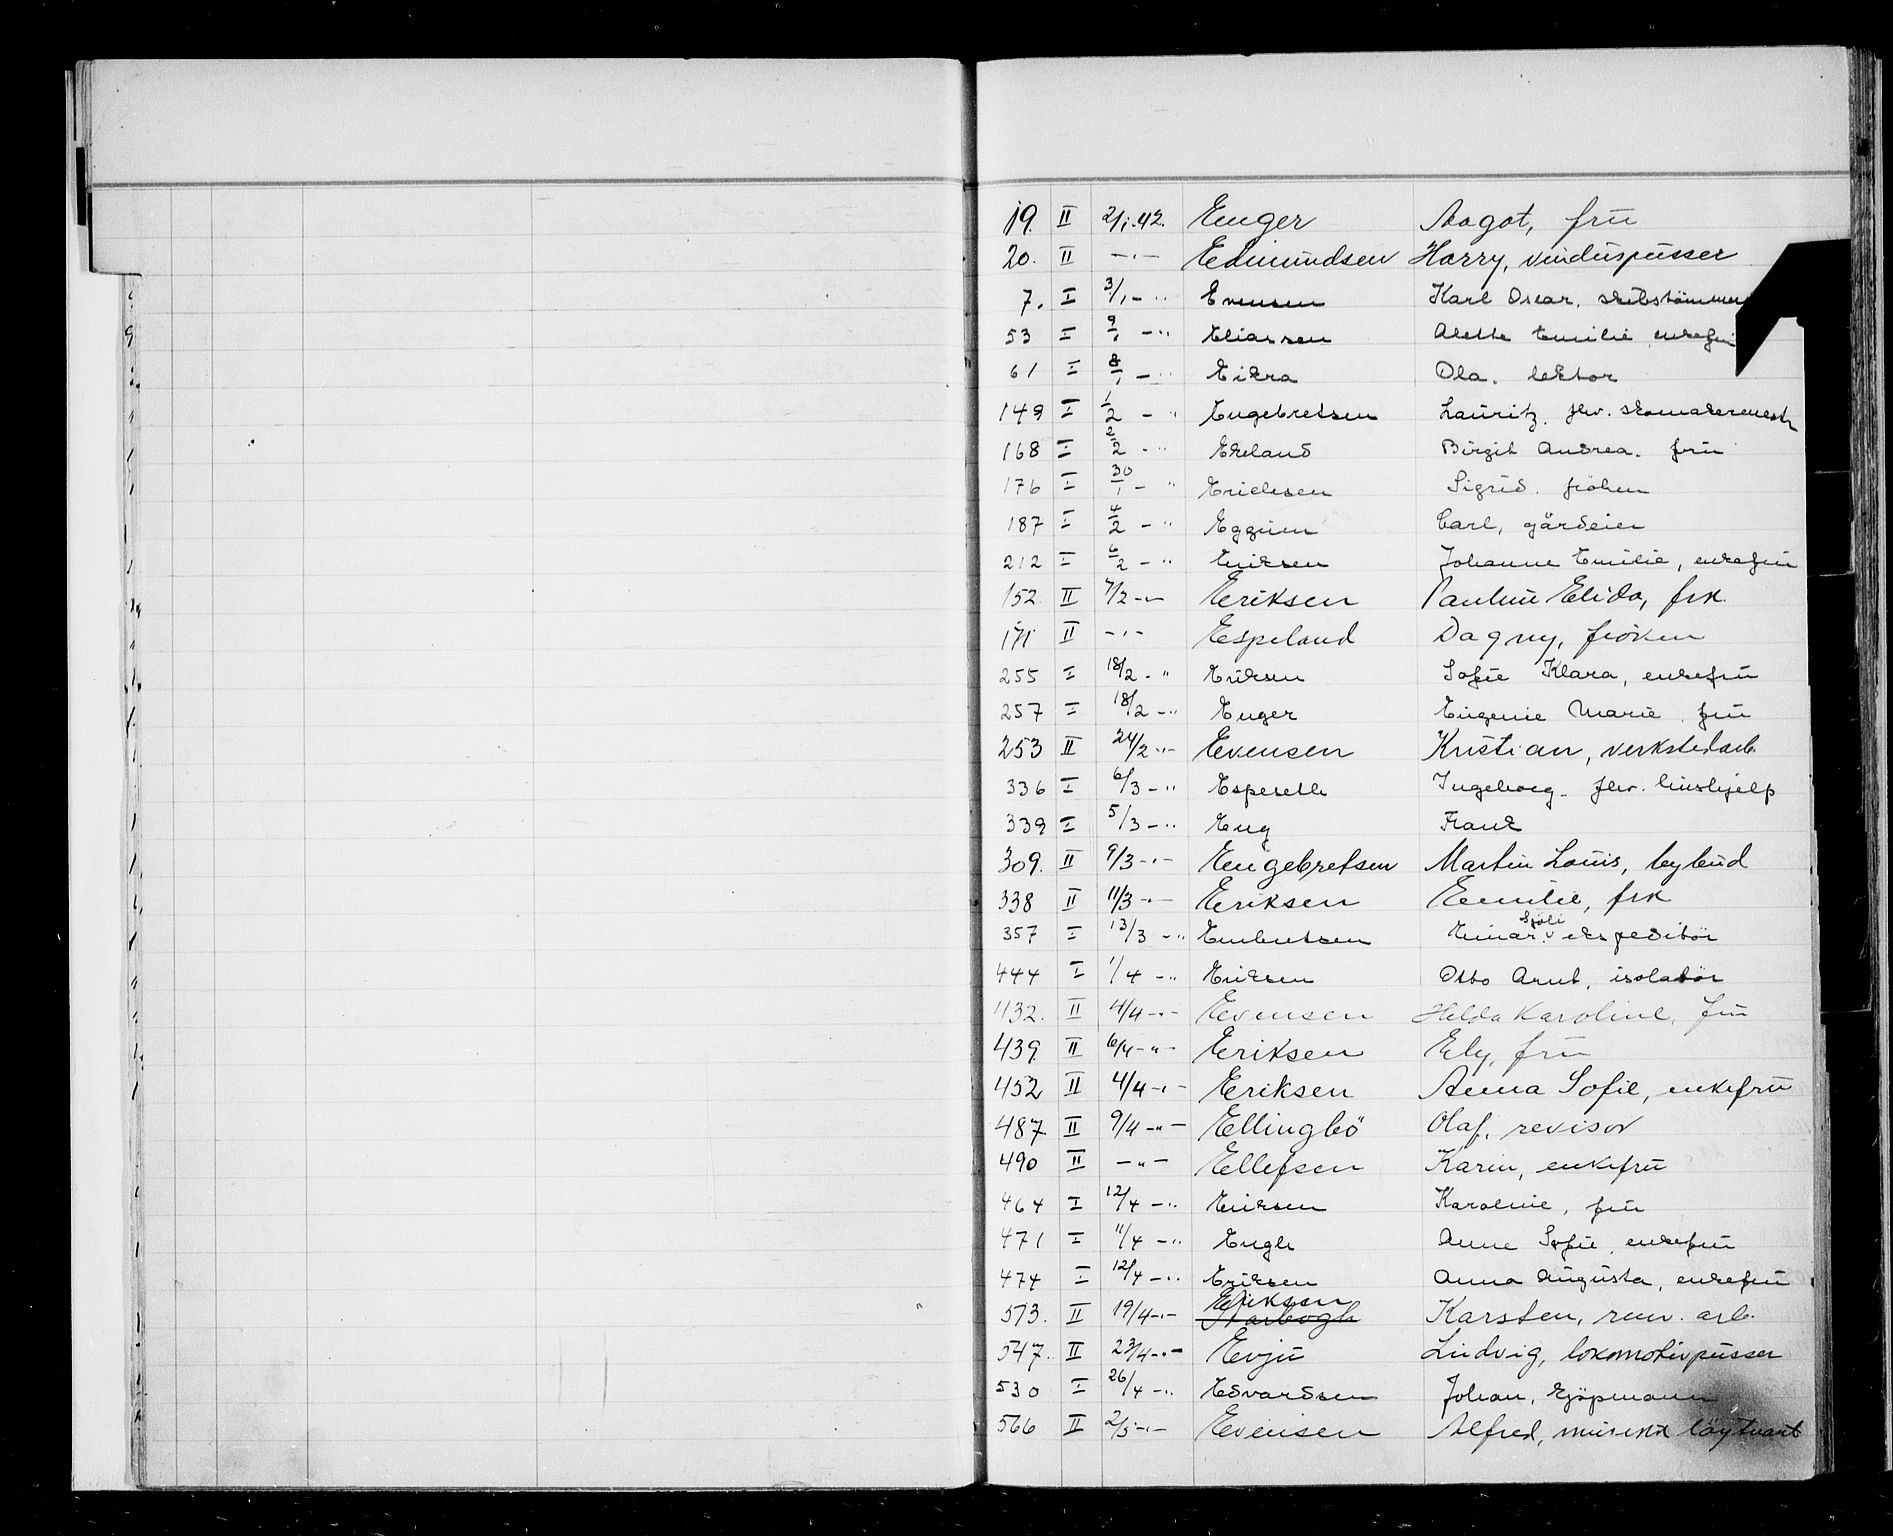 19. II 2/1.42. Enger Aagot, frū
20. II -"- Edmundsen Harry, vinduspusser
7. I 3/1 - " Evensen Karl Oscar, skibstömmer
53 I 9/1 - " Eliassen Alette Emilie, enkefrū
61 I 8/1 - " Eikra Ola. lektor
149 I 1/2 - " Engebretsen Lauritz. fhv. skomakermestr
168 I 2/2 - " Ekeland Birgit Andrea. frū
176 I 30/1 - " Erichsen Sigrid. fröken
187 I 4/2 - " Eggum Carl, gårdeier
212 I 6/2 - " Eriksen Johanne Emilie, enkefrū
152 II 7/2 -"- Eriksen Pauline Elida, frk.
171 II -"- Espeland Dagny, fröken
255 I 18/2 - " Eriksen Sofie Klara, enkefrū
257 I 18/2 - " Enger Eugenie Marie, frū
253 II 24/2 -"- Evensen Kristian, verkstedarb.
336 I 6/3 - " Espeseth Ingeborg. fhv. hushjelp
339 I 5/3 - " Eng Frank
309. II 9/3 -"- Engebretsen Martin Louis, bybud
338 II 11/3 -"- Eriksen Emilie, frk
357 I 13/3 - " Embretsen Einar Sjöli ekspeditör
444 I 1/4 - " Eriksen Otto Arnt, isolatör
432. II 4/4 -"- Evensen Helda Karoline, frū
439. II 6/4 -"- Eriksen Ely, frū
452 II 4/4 -"- Eriksen Anna Sofie, enkefrū
487. II 9/4 -"- Ellingbö Olaf, revisor
490 II -"- Ellefsen Karin, enkefrū
464 I 12/4 - " Eriksen Karoline, frū
471 I 11/4 - " Engh Anne Sofie, enkefrū
474 I 12/4 - " Eriksen Anna Augusta, enkefrū
Eriksen
513. II 19/4 -"- Karsten, renv. arb.
547. II 23/4 -"- Evju Ludvig, lokomotivpusser
530 I 26/4 - " Edvardsen Johan, kjöpmann
566 II 2/5 -"- Evensen Alfred, musikk löytnant